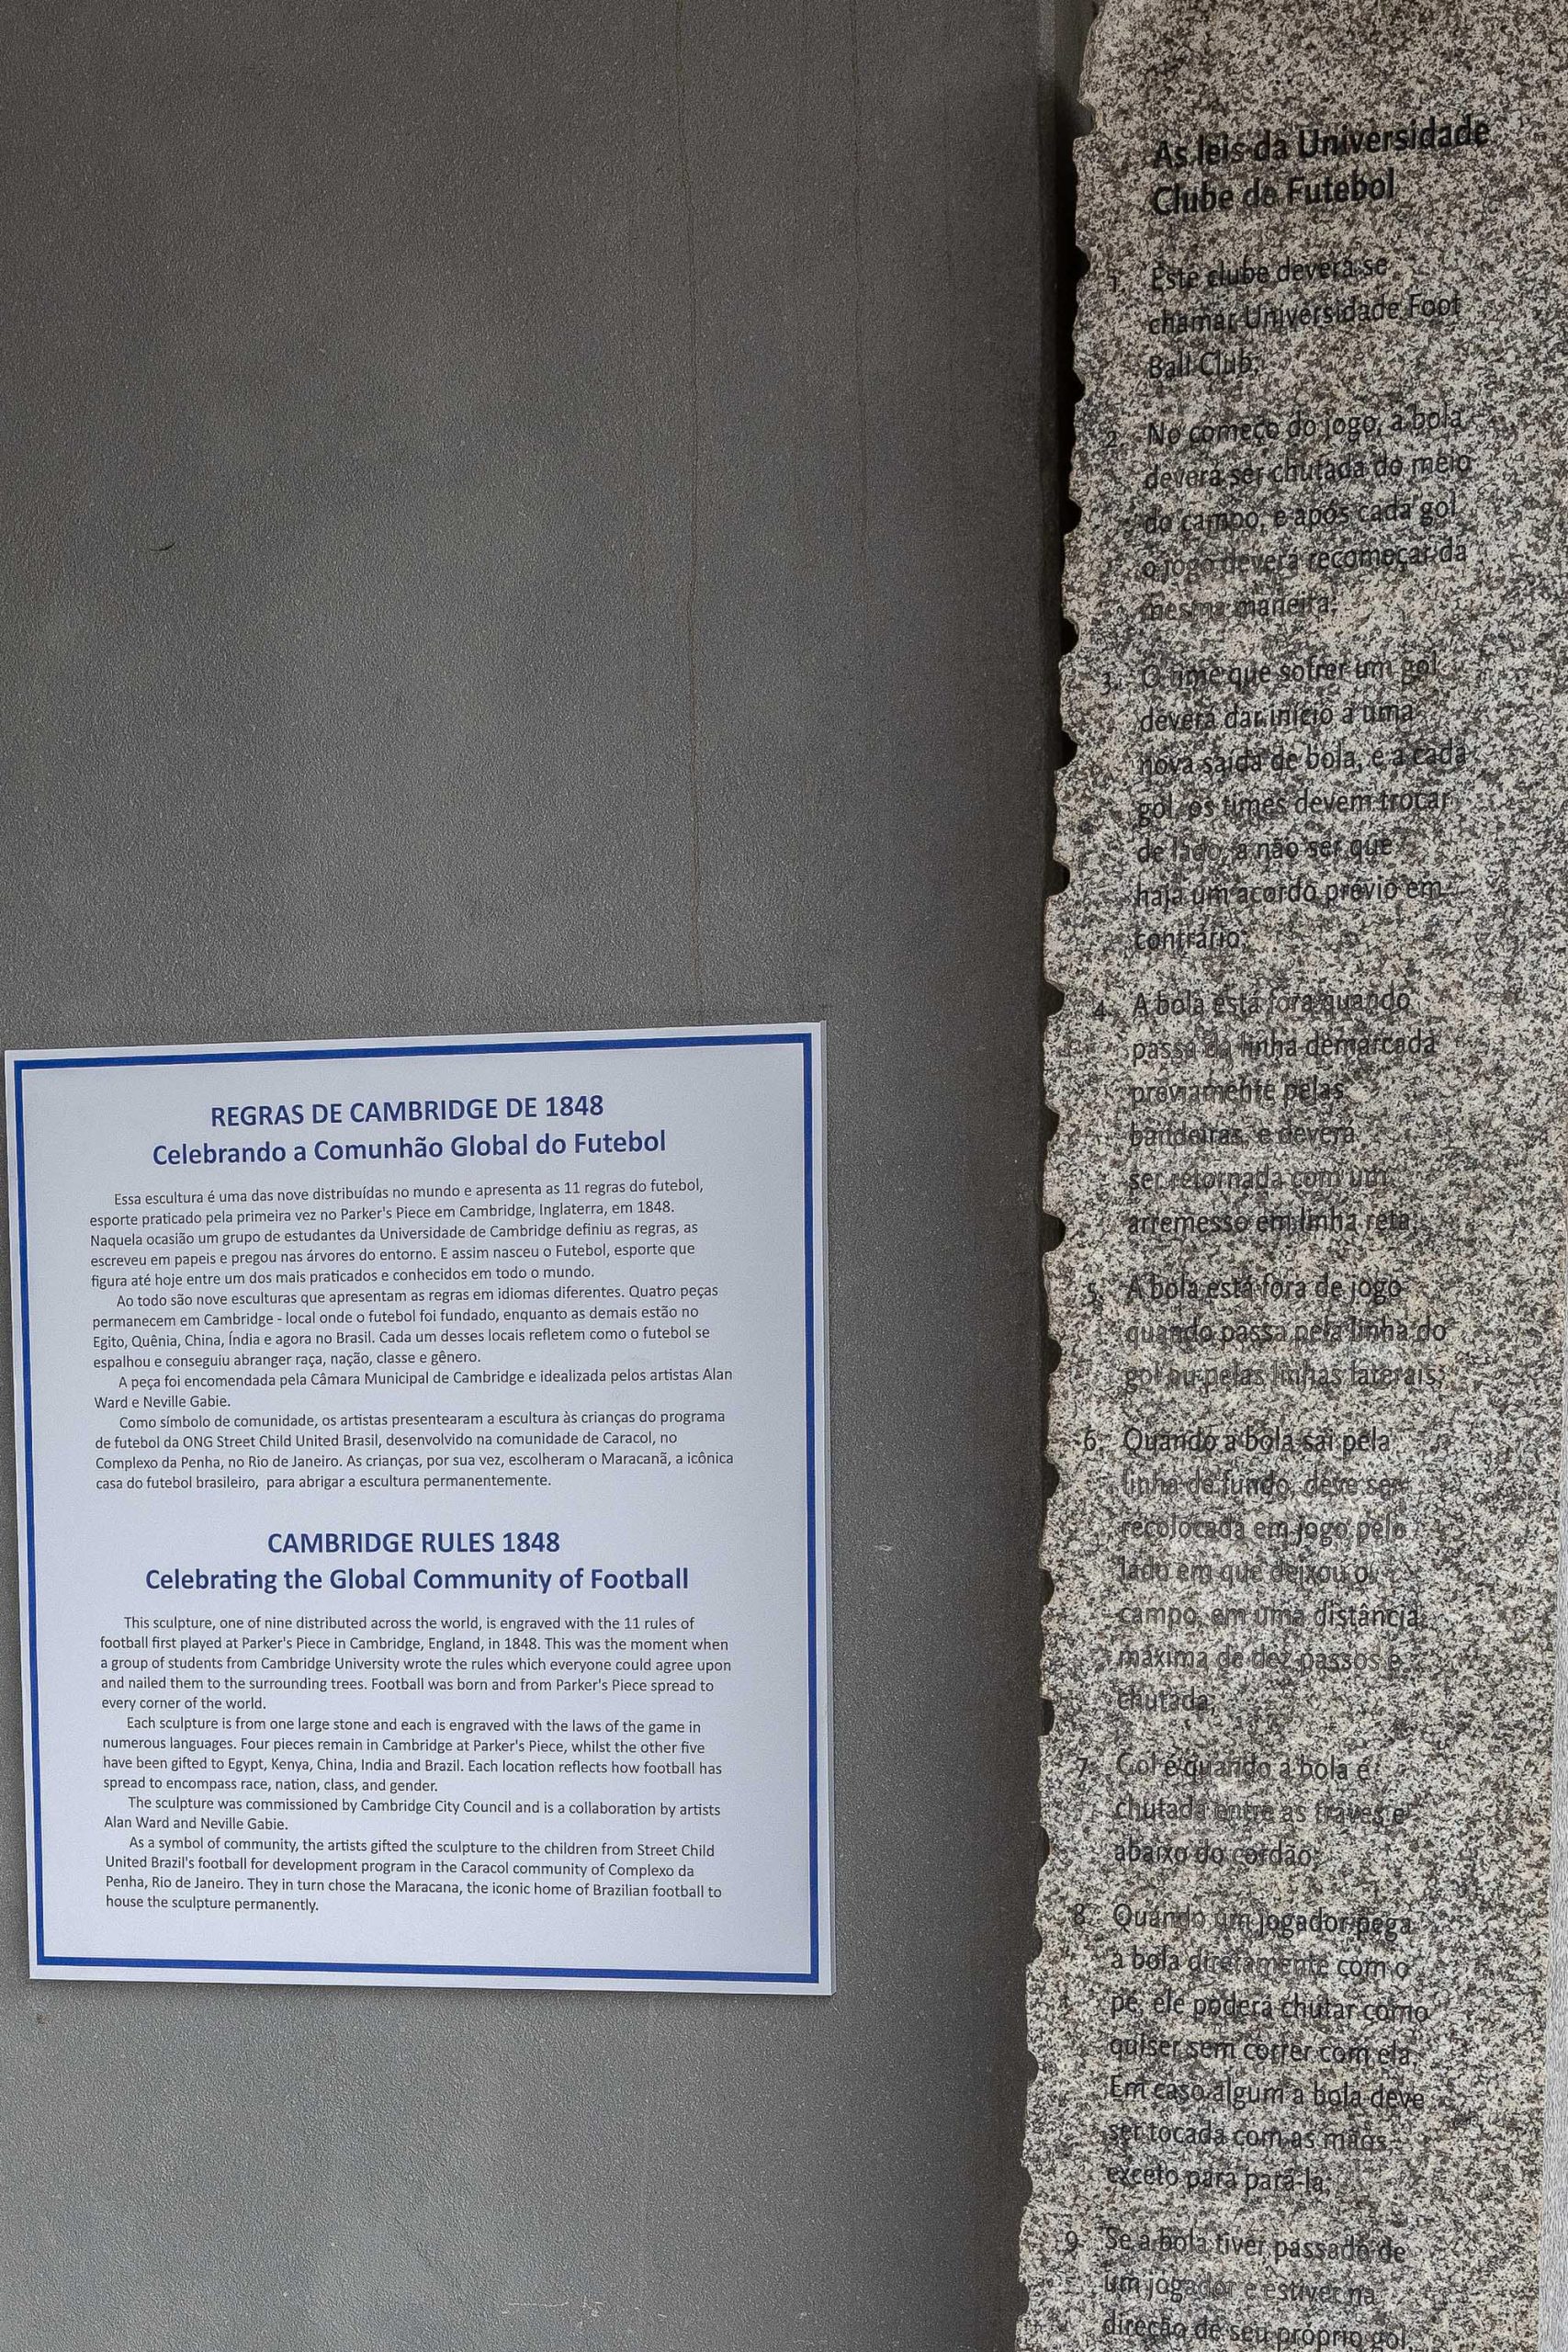 REGRAS DE CAMBRIDGE DE 1848
Celebrando a Comunhão Global do Futebol
Essa escultura é uma das nove distribuídas no mundo e apresenta as 11 regras do futebol,
esporte praticado pela primeira vez no Parker's Piece em Cambridge, Inglaterra, em 1848.
Naquela ocasião um grupo de estudantes da Universidade de Cambridge definiu as regras, as
escreveu em papeis e pregou nas árvores do entorno. E assim nasceu o Futebol, esporte que
figura até hoje entre um dos mais praticados e conhecidos em todo o mundo.
Ao todo são nove esculturas que apresentam as regras em idiomas diferentes. Quatro peças
permanecem em Cambridge - local onde o futebol foi fundado, enquanto as demais estão no
Egito, Quênia, China, Índia e agora no Brasil. Cada um desses locais refletem como o futebol se
espalhou e conseguiu abranger raça, nação, classe e gênero.
A peça foi encomendada pela Câmara Municipal de Cambridge e idealizada pelos artistas Alan
Ward e Neville Gabie.
Como símbolo de comunidade, os artistas presentearam a escultura às crianças do programa
de futebol da ONG Street Child United Brasil, desenvolvido na comunidade de Caracol, no
Complexo da Penha, no Rio de Janeiro. As crianças, por sua vez, escolheram o Maracanã, a icônica
casa do futebol brasileiro, para abrigar a escultura permanentemente.
CAMBRIDGE RULES 1848
Celebrating the Global Community of Football
This sculpture, one of nine distributed across the world, is engraved with the 11 rules of
football first played at Parker's Piece in Cambridge, England, in 1848. This was the moment when
a group of students from Cambridge University wrote the rules which everyone could agree upon
and nailed them to the surrounding trees. Football was born and from Parker's Piece spread to
every corner of the world.
Each sculpture is from one large stone and each is engraved with the laws of the game in
numerous languages. Four pieces remain in Cambridge at Parker's Piece, whilst the other five
have been gifted to Egypt, Kenya, China, India and Brazil. Each location reflects how football has
spread to encompass race, nation, class, and gender.
The sculpture was commissioned by Cambridge City Council and is a collaboration by artists
Alan Ward and Neville Gabie.
As a symbol of community, the artists gifted the sculpture to the children from Street Child
United Brazil's football for development program in the Caracol community of Complexo da
Penha, Rio de Janeiro. They in turn chose the Maracana, the iconic home of Brazilian football to
house the sculpture permanently.
As leis da Universidade
Clube de Futebol
1. Este clube deverá se
chamar Universidade Foot
Ball Club;
2. No começo do jogo, a bola
deverá ser chutada do meio
do campo, e após cada gol
o jogo deverá recomeçar da
mesma maneira;
3. O time que sofrer um gol
deverá dar início a uma
nova saída de bola, e a cada
gol, os times devem trocar
de lado, a não ser que
haja um acordo prévio em
contrário;
4. A bola está fora quando
passa da linha demarcada
previamente pelas
bandeiras, e deverá
ser retornada com um
arremesso em linha reta;
5. A bola está fora de jogo
quando passa pela linha do
gol ou pelas linhas laterais;
6. Quando a bola sai pela
linha de fundo, deve ser
recolocada em jogo pelo
lado em que deixou o
campo, em uma distância
máxima de dez passos e
chutada;
7. Gol é quando a bola é
chutada entre as traves e
abaixo do cordão;
8. Quando um jogador pega
a bola diretamente com o
pé, ele poderá chutar como
quiser sem correr com ela.
Em caso algum a bola deve
ser tocada com as mãos,
exceto para pará-la;
9. Se a bola tiver passado de
um jogador e estiver na
direção de seu próprio gol,